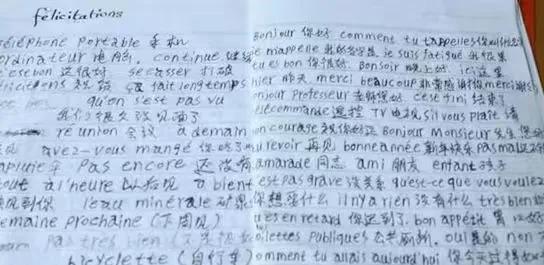 félicitations
téléphone portable 手机
ordinateur 电脑, continue 继续
c'est bon 这很好 se casser 打破
félicitations 祝贺 ça fait longtemps
qu'on s'est pas vu
我们很久没见面了
réunion 会议 a demain
avez-vous mangé 你吃了吗
pluie Pas encore 还没有
tout a l'heure 以后见 a bient
见到你 l'eau minérale 矿泉
semaine prochaine (下周见)
pas très bien (不是很好
bicyclette (自行车)
Bonjour 你好 comment tu t'appelles 你叫什么
je m'appelle 我的名字是 je suis fatigué 我很累
tu es bon 你很好. Bonsoir 晚上好 ici 这里
hier 昨天 merci beaucoup 非常感谢 merci 谢谢
bonjour Professeur 老师您好 c'est fini 结束了
télécommande 遥控 TV 电视 s'il vous plaît 请
bon courage 祝你好运 Bonjour Monsieur 先生
au revoir 再见 bonne année 新年快乐 Pas mal
camarade 同志 ami 朋友 enfant 孩子
est pas grave 没关系 qu'est-ce que vous voulez
你想要什么 il n'y a rien 没有什么 très bien
tu es en retard 你迟到了. bon appétit 胃口好
toilettes publiques 公共厕所, oui 是的 non
comment tu allais aujourd'hui 你今天过得如何